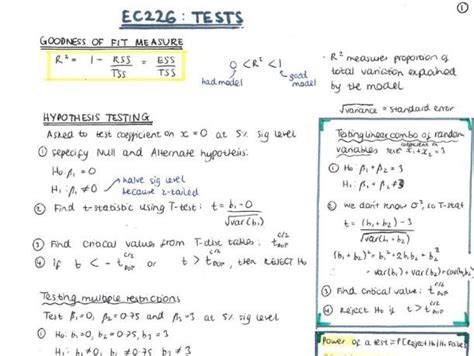 EC226: TESTS
①
GOODNESS OF FIT MEASURE
R² = 1 - RSS/TSS = ESS/TSS
0 < R² < 1
bad model
good model
• R² measures proportion of
total variation explained
by the model
√variance = standard error
HYPOTHESIS TESTING
Asked to test coefficient on x = 0 at 5% sig level
① specify Null and Alternate hypothesis:
H₀: β₁ = 0
H₁: β₁ ≠ 0
halve sig level
because 2-tailed
② Find t-statistic using T-test: t = b₁-0/√Var(b₁)
③ Find critical values from T-dist tables:
④ if t < - t or t > t, then REJECT H₀
Testing multiple restrictions
Test β₁=0, β₂=0.75 and β₃=3 at 5% sig level
① H₀: b₁=0, b₂=0.75, b₃=3
Testing linear combo of random
variables
① H₀: β₁+β₂ = 3
H₁: β₁+β₂ ≠ 3
② we don't know σ², so T-stat
t = (b₁+b₂) - 3/√Var(b₁+b₂)
(b₁+b₂)² = b₁² + 2b₁b₂ + b₂²
∴ Var(b₁) + Var(b₂) +
③ Find critical value:
④ Reject H₀ if t >
Power of a test = P(Reject H₀|H₀ False)